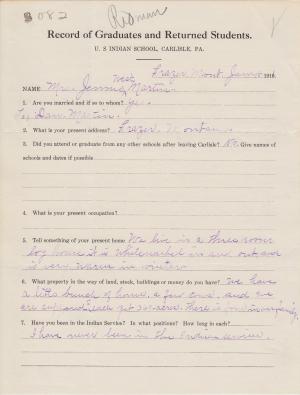 3082
Redman
Record of Graduates and Returned Students.
U. S INDIAN SCHOOL, CARLISLE, PA.
Frazer Mont. June 1916
West
NAME Mrs. Jennie Martin.
1. Are you married and if so to whom? yes.
To Dan. Martin.
2. What is your present address? Frazer, Montana.
3. Did you attend or graduate from any other schools after leaving Carlisle? No Give names of
schools and dates if possible
4. What is your present occupation?
5. Tell something of your present home We live in a three room
log house it is whitewashed in and out, and
is very warm in winter.
6. What property in the way of land, stock, buildings or money do you have? We have
a little bunch of horses, a few cows, and we
are each get 320 acres. There is four in our family.
7. Have you been in the Indian Service? In what positions? How long in each?
I have never been in the Indian service.